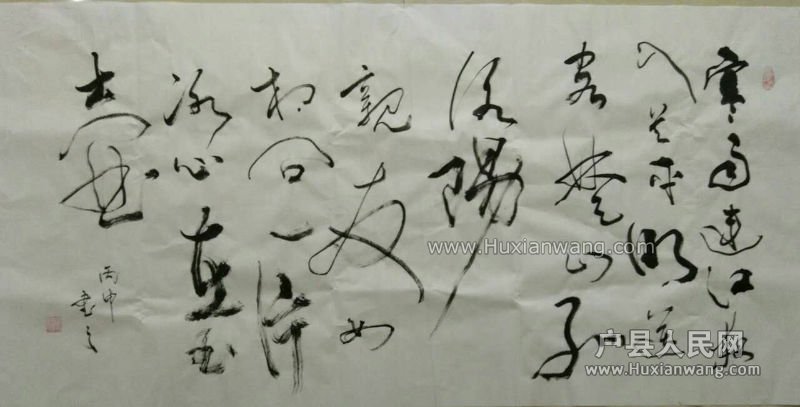 寒雨連江夜
入吴平明送
客楚山孤
洛陽
親友如
相問一片
冰心在玉
壺
丙申
書之
www.Huxianwang.com
户县人民网
www.Huxianwang.com